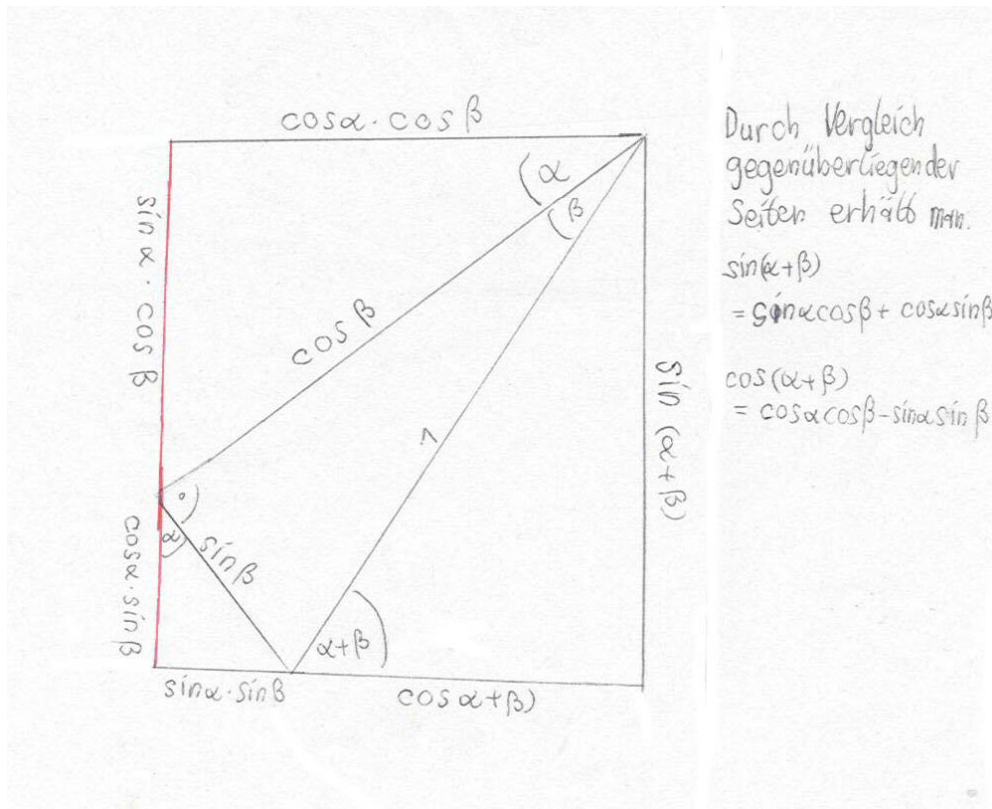 cosα·cosβ
α
β
sinα·cosβ
cosβ
1
sin(α+β)
α
sinβ
cosα·sinβ
α+β
sinα·sinβ
cosα+β)
Durch Vergleich
gegenüberliegender
Seiten erhält man.
sin(α+β)
= sinαcosβ + cosαsinβ
cos(α+β)
= cosαcosβ-sinαsinβ